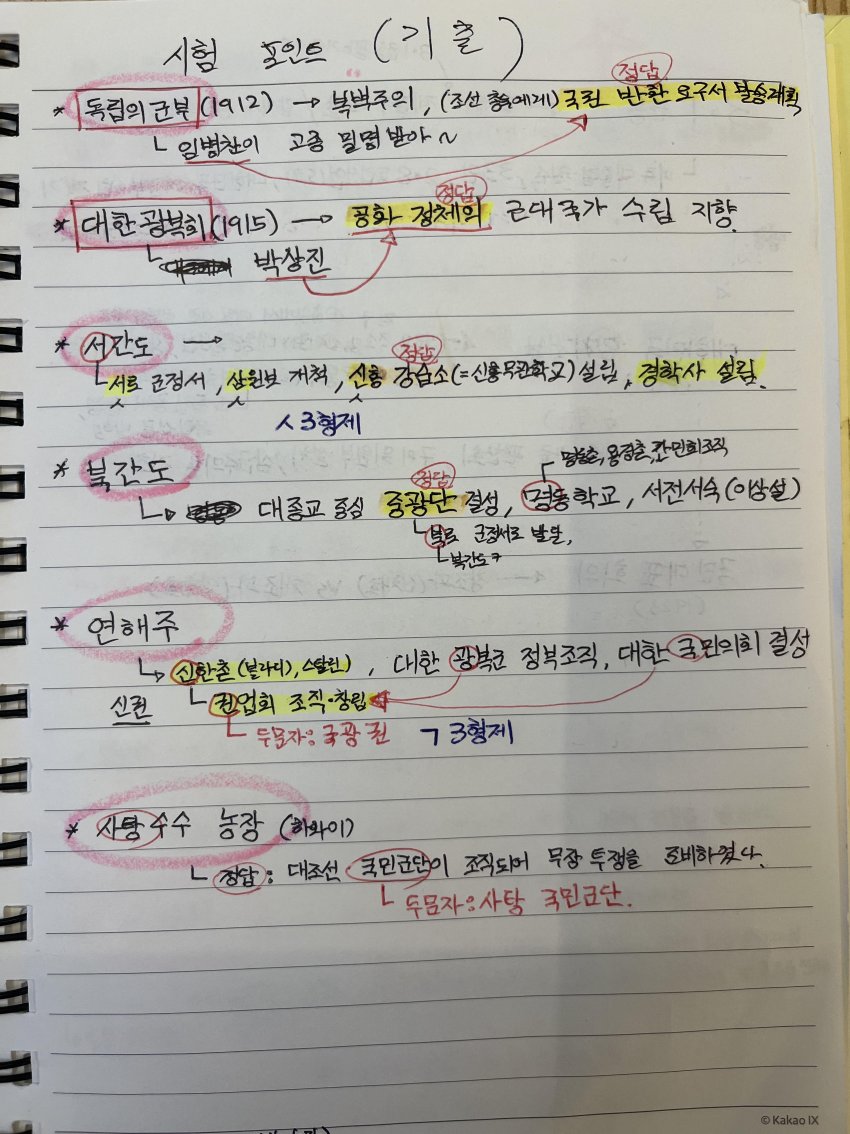 시험 포인트 (기출)
정답
* 독립의군부 (1912) → 복벽주의, (조선 총독에게) 국권 반환 요구서 발송계획
ㄴ 임병찬이 고종 밀명 받아~
정답
* 대한광복회 (1915) → 공화 정체의 근대국가 수립 지향.
ㄴ 박상진
* 서간도 →
정답
ㄴ 서로군정서, 삼원보 개척, 신흥 강습소(=신흥무관학교)설립, 경학사 설립.
ㅅ 3형제
* 북간도
명동촌, 용정촌, 간민회조직
정답
ㄴ 대종교 중심 중광단 결성, 명동학교, 서전서숙(이상설)
ㄴ 북로 군정서로 발전,
ㄴ 북간도ㅋ
* 연해주
ㄴ 신한촌 (블라디), 스탈린), 대한 광복군 정부조직, 대한 국민의회 결성
신권
ㄴ 권업회 조직·창립
ㄴ 두문자: 국광권
ㄱ 3형제
* 사탕수수 농장 (하와이)
ㄴ 정답: 대조선 국민군단이 조직되어 무장 투쟁을 준비하였다.
ㄴ 두문자: 사탕 국민군단.
© Kakao IX